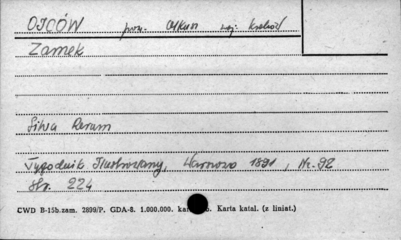 OJCÓW pow. Olkusz woj. Kraków
Zamek
Silva Rerum
Tygodnik Ilustrowany, Warszawa 1891, Nr. 92
Str. 224
CWD B-15b.zam. 2899/P. GDA-8. 1.000.000. Karta katal. (z liniat.)